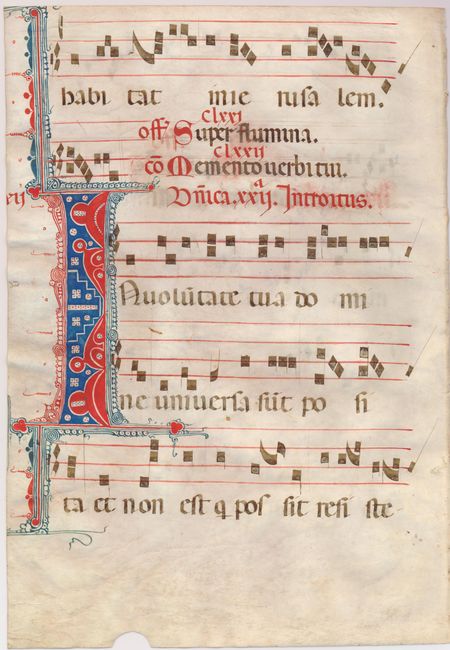 habi tat in ie rusa lem.
clxxj
off Super flumina.
clxxij
cō Memento verbi tui.
Dn̄ica. xxij. a Introitus.
In volūtate tua do mi
ne universa sūt po si
ta et non est q pos sit resi ste